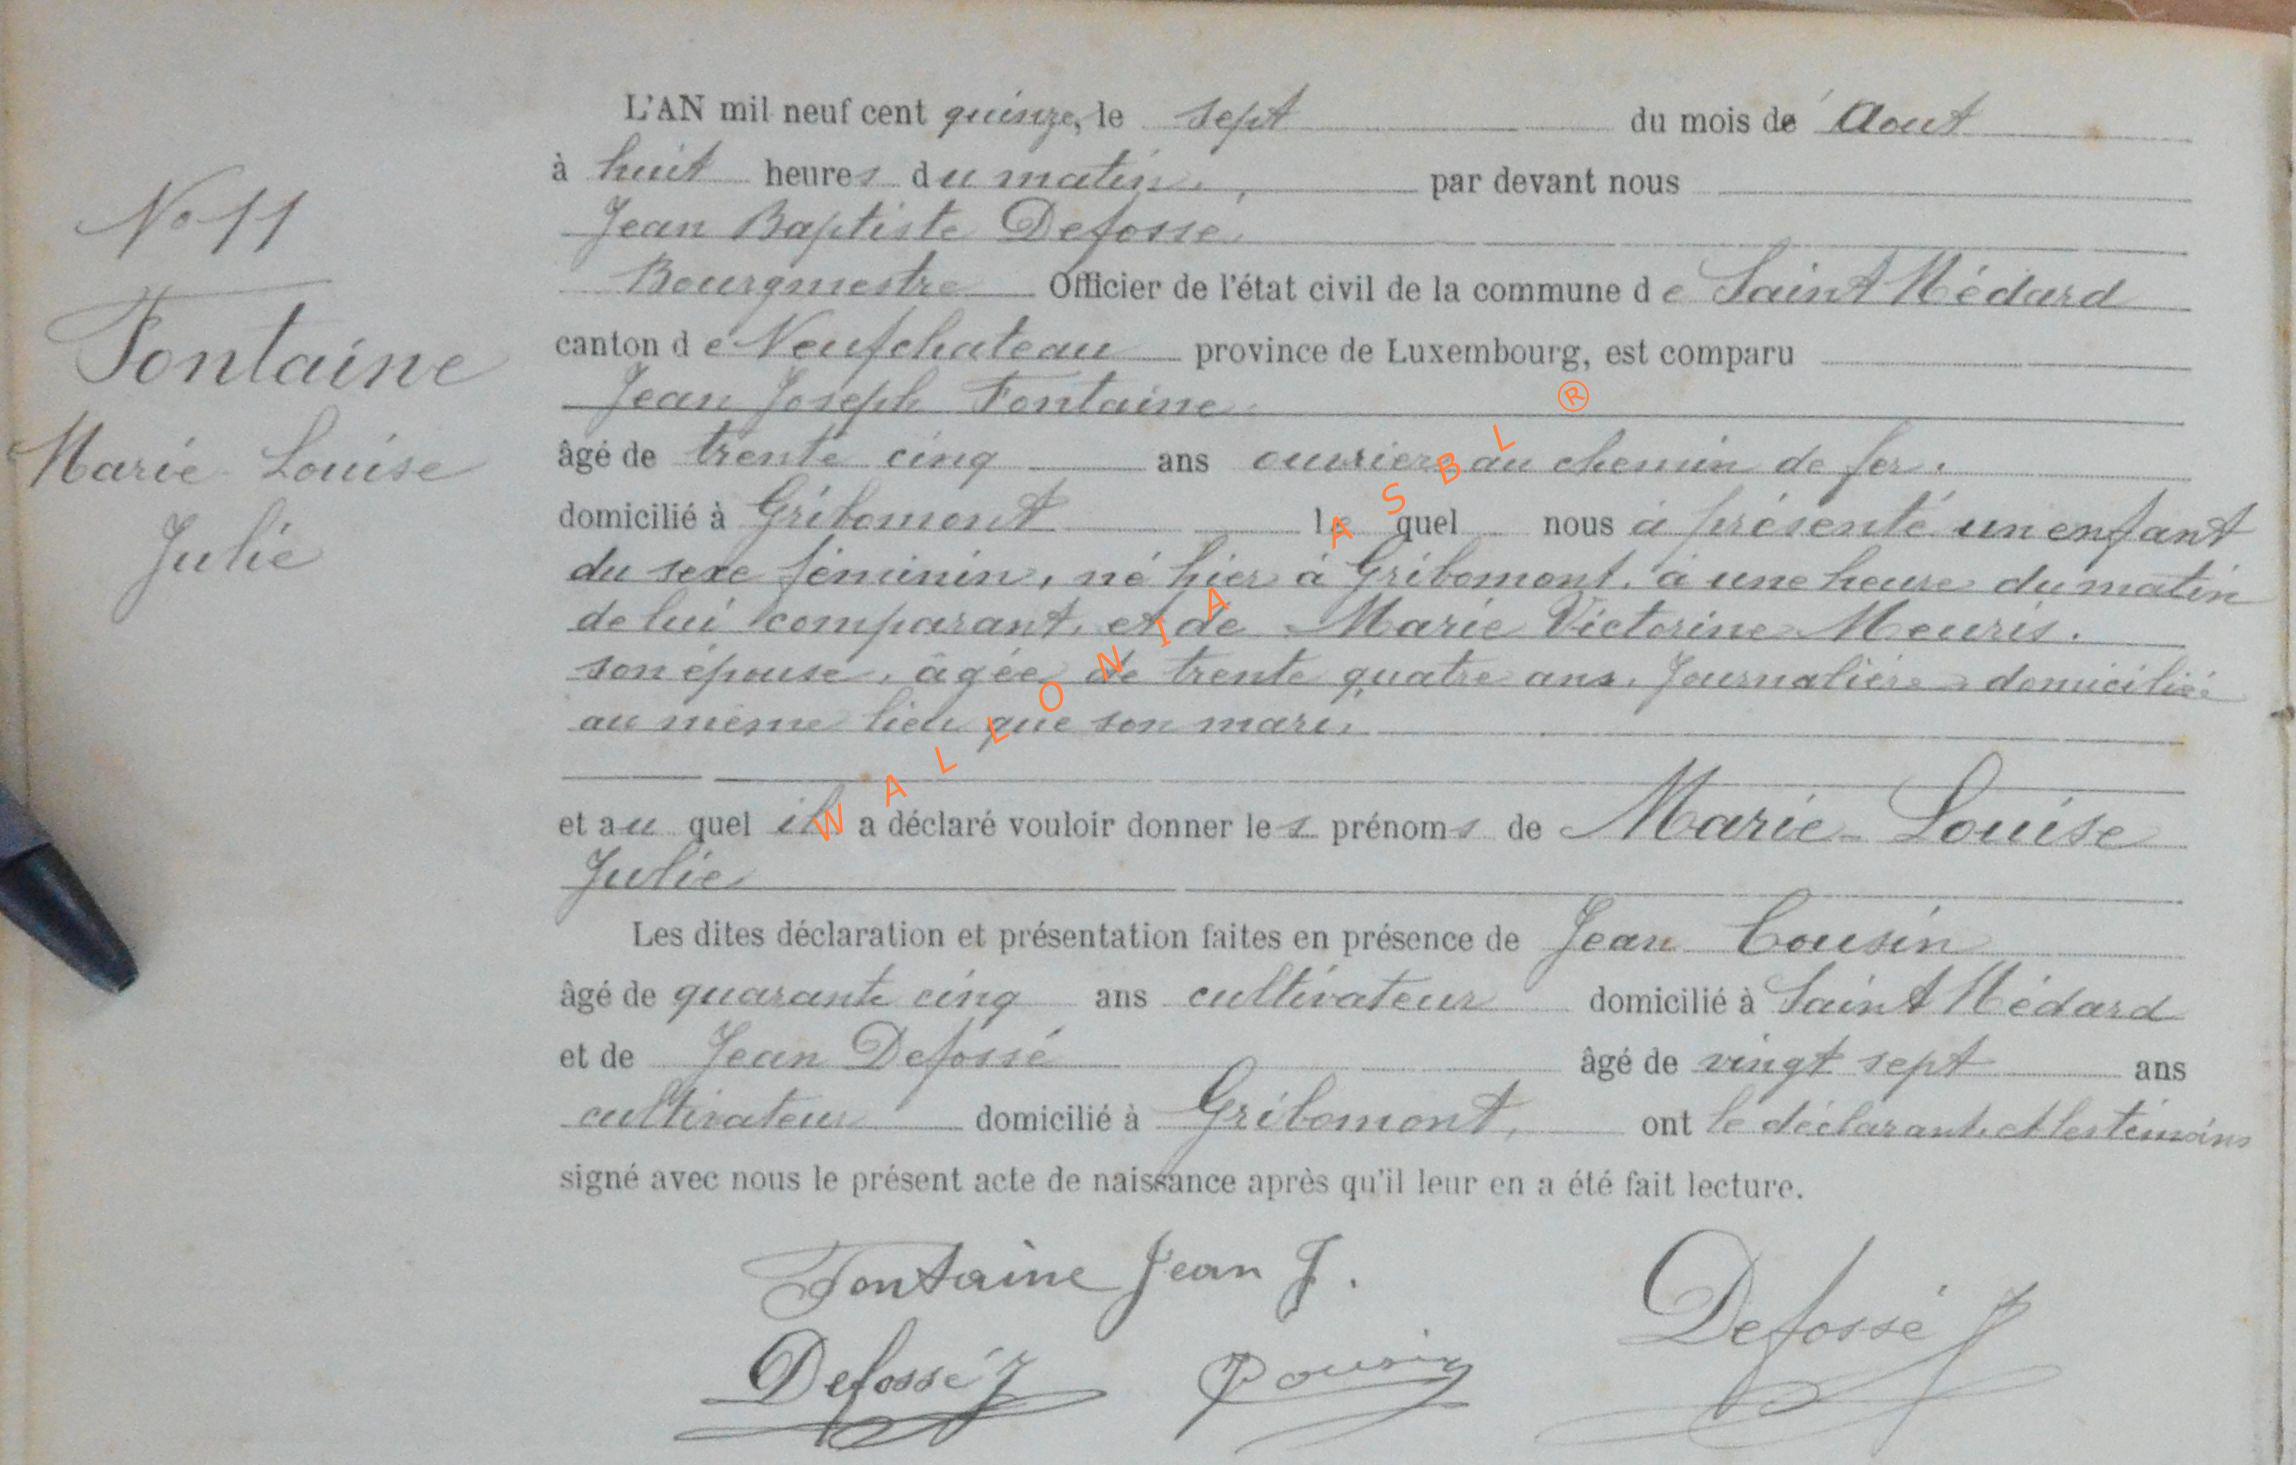 N° 11
Fontaine
Marie Louise
Julie
L'AN mil neuf cent quinze, le sept du mois de Aout
à huit heures du matin, par devant nous
Jean Baptiste Defossé
Bourgmestre Officier de l'état civil de la commune de Saint Médard
canton de Neufchateau province de Luxembourg, est comparu
Jean Joseph Fontaine
âgé de trente cinq ans ouvrier au chemin de fer.
domicilié à Gribomont lequel nous a présenté un enfant
du sexe féminin, né hier à Gribomont, à une heure du matin
de lui comparant, et de Marie Victorine Meuris.
son épouse, âgée de trente quatre ans, Journalière domiciliée
au même lieu que son mari,
et au quel il a déclaré vouloir donner les prénoms de Marie Louise
Julie
Les dites déclaration et présentation faites en présence de Jean Cousin
âgé de quarante cinq ans cultivateur domicilié à Saint Médard
et de Jean Defossé âgé de vingt sept ans
cultivateur domicilié à Gribomont, ont le déclarant et les témoins
signé avec nous le présent acte de naissance après qu'il leur en a été fait lecture.
Fontaine Jean J.
Defossé J
Cousin
Defossé J
WALLONIA ASBL ®